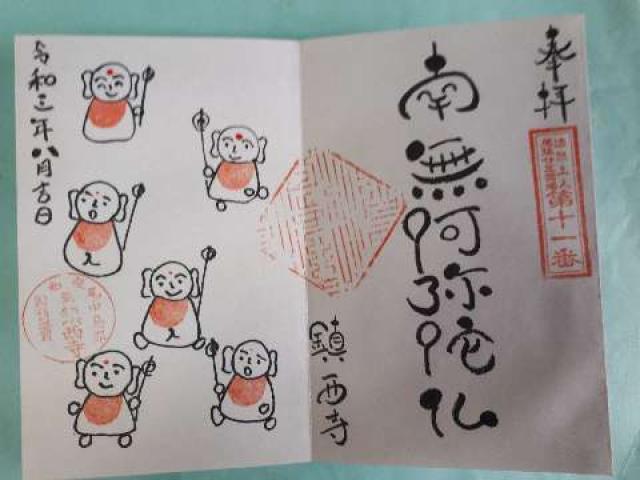 奉拝
第十一番
南無阿弥陀仏
鎮西寺
令和三年八月吉日